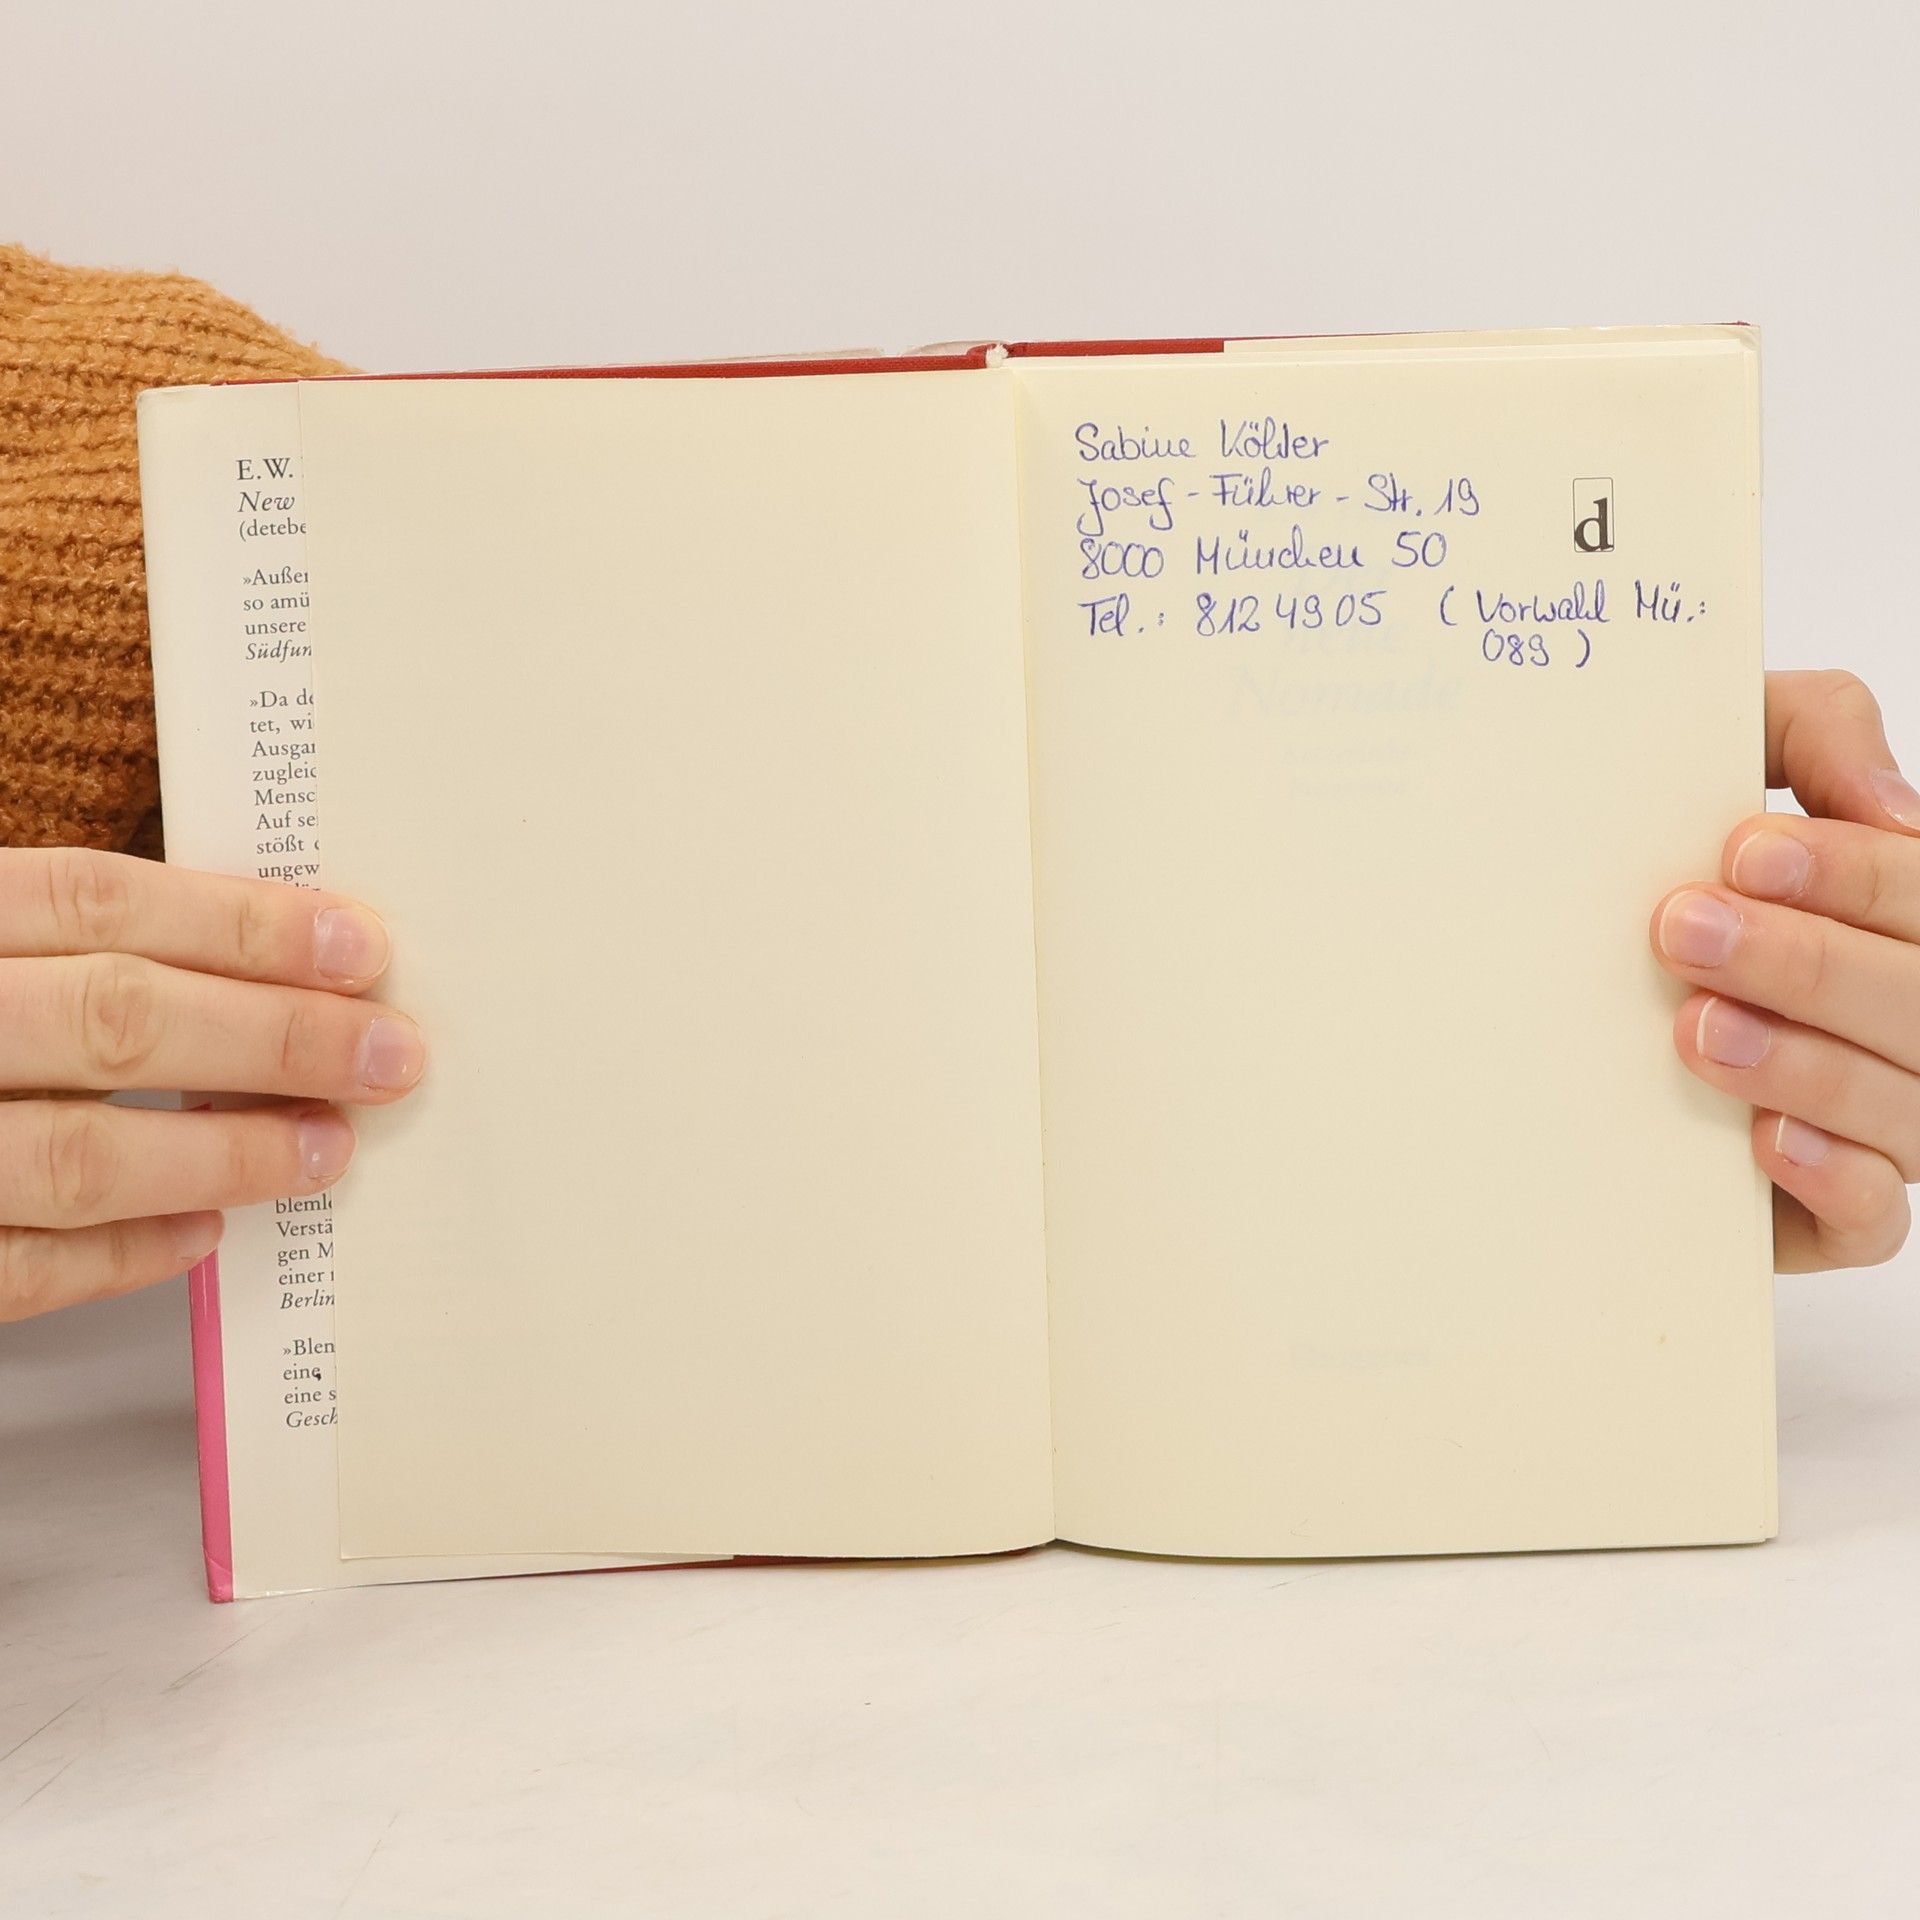 E.W.
New
(detebe
»Außer
so amü
unsere
Südfun
»Da de
tet, wi
Ausgan
zugleic
Mensc
Auf se
stößt
ungew
bleml
Verstä
gen M
einer
Berlin
»Blen
eine
eine s
Gesch
Sabine Köhler
Josef-Führer-Str. 19
8000 München 50
Tel.: 812 49 05 (Vorwahl Mü.:
089)
d
Nomade